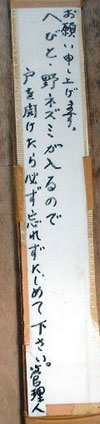 お願い申し上げます。
へびと・野ネズミが入るので
戸を開けたら必ず忘れずにしめて下さい。管理人